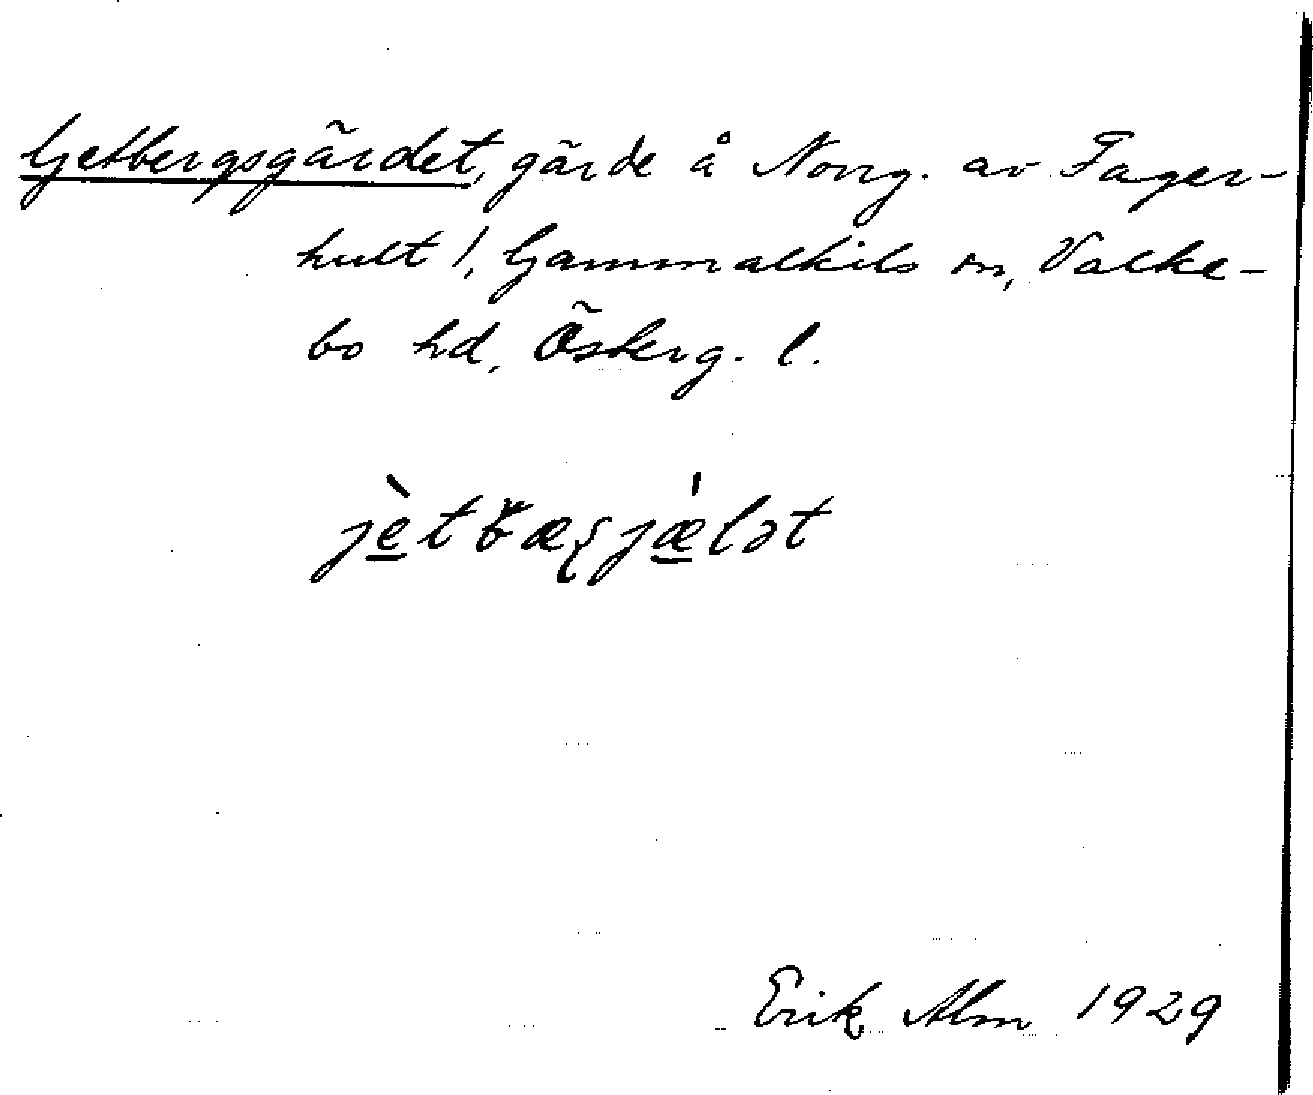 Getbergsgärdet, gärde å Norrg. av Fager-
hult 1, Gammalkils sn, Valke-
bo hd, Österg. l.
Erik Alm 1929